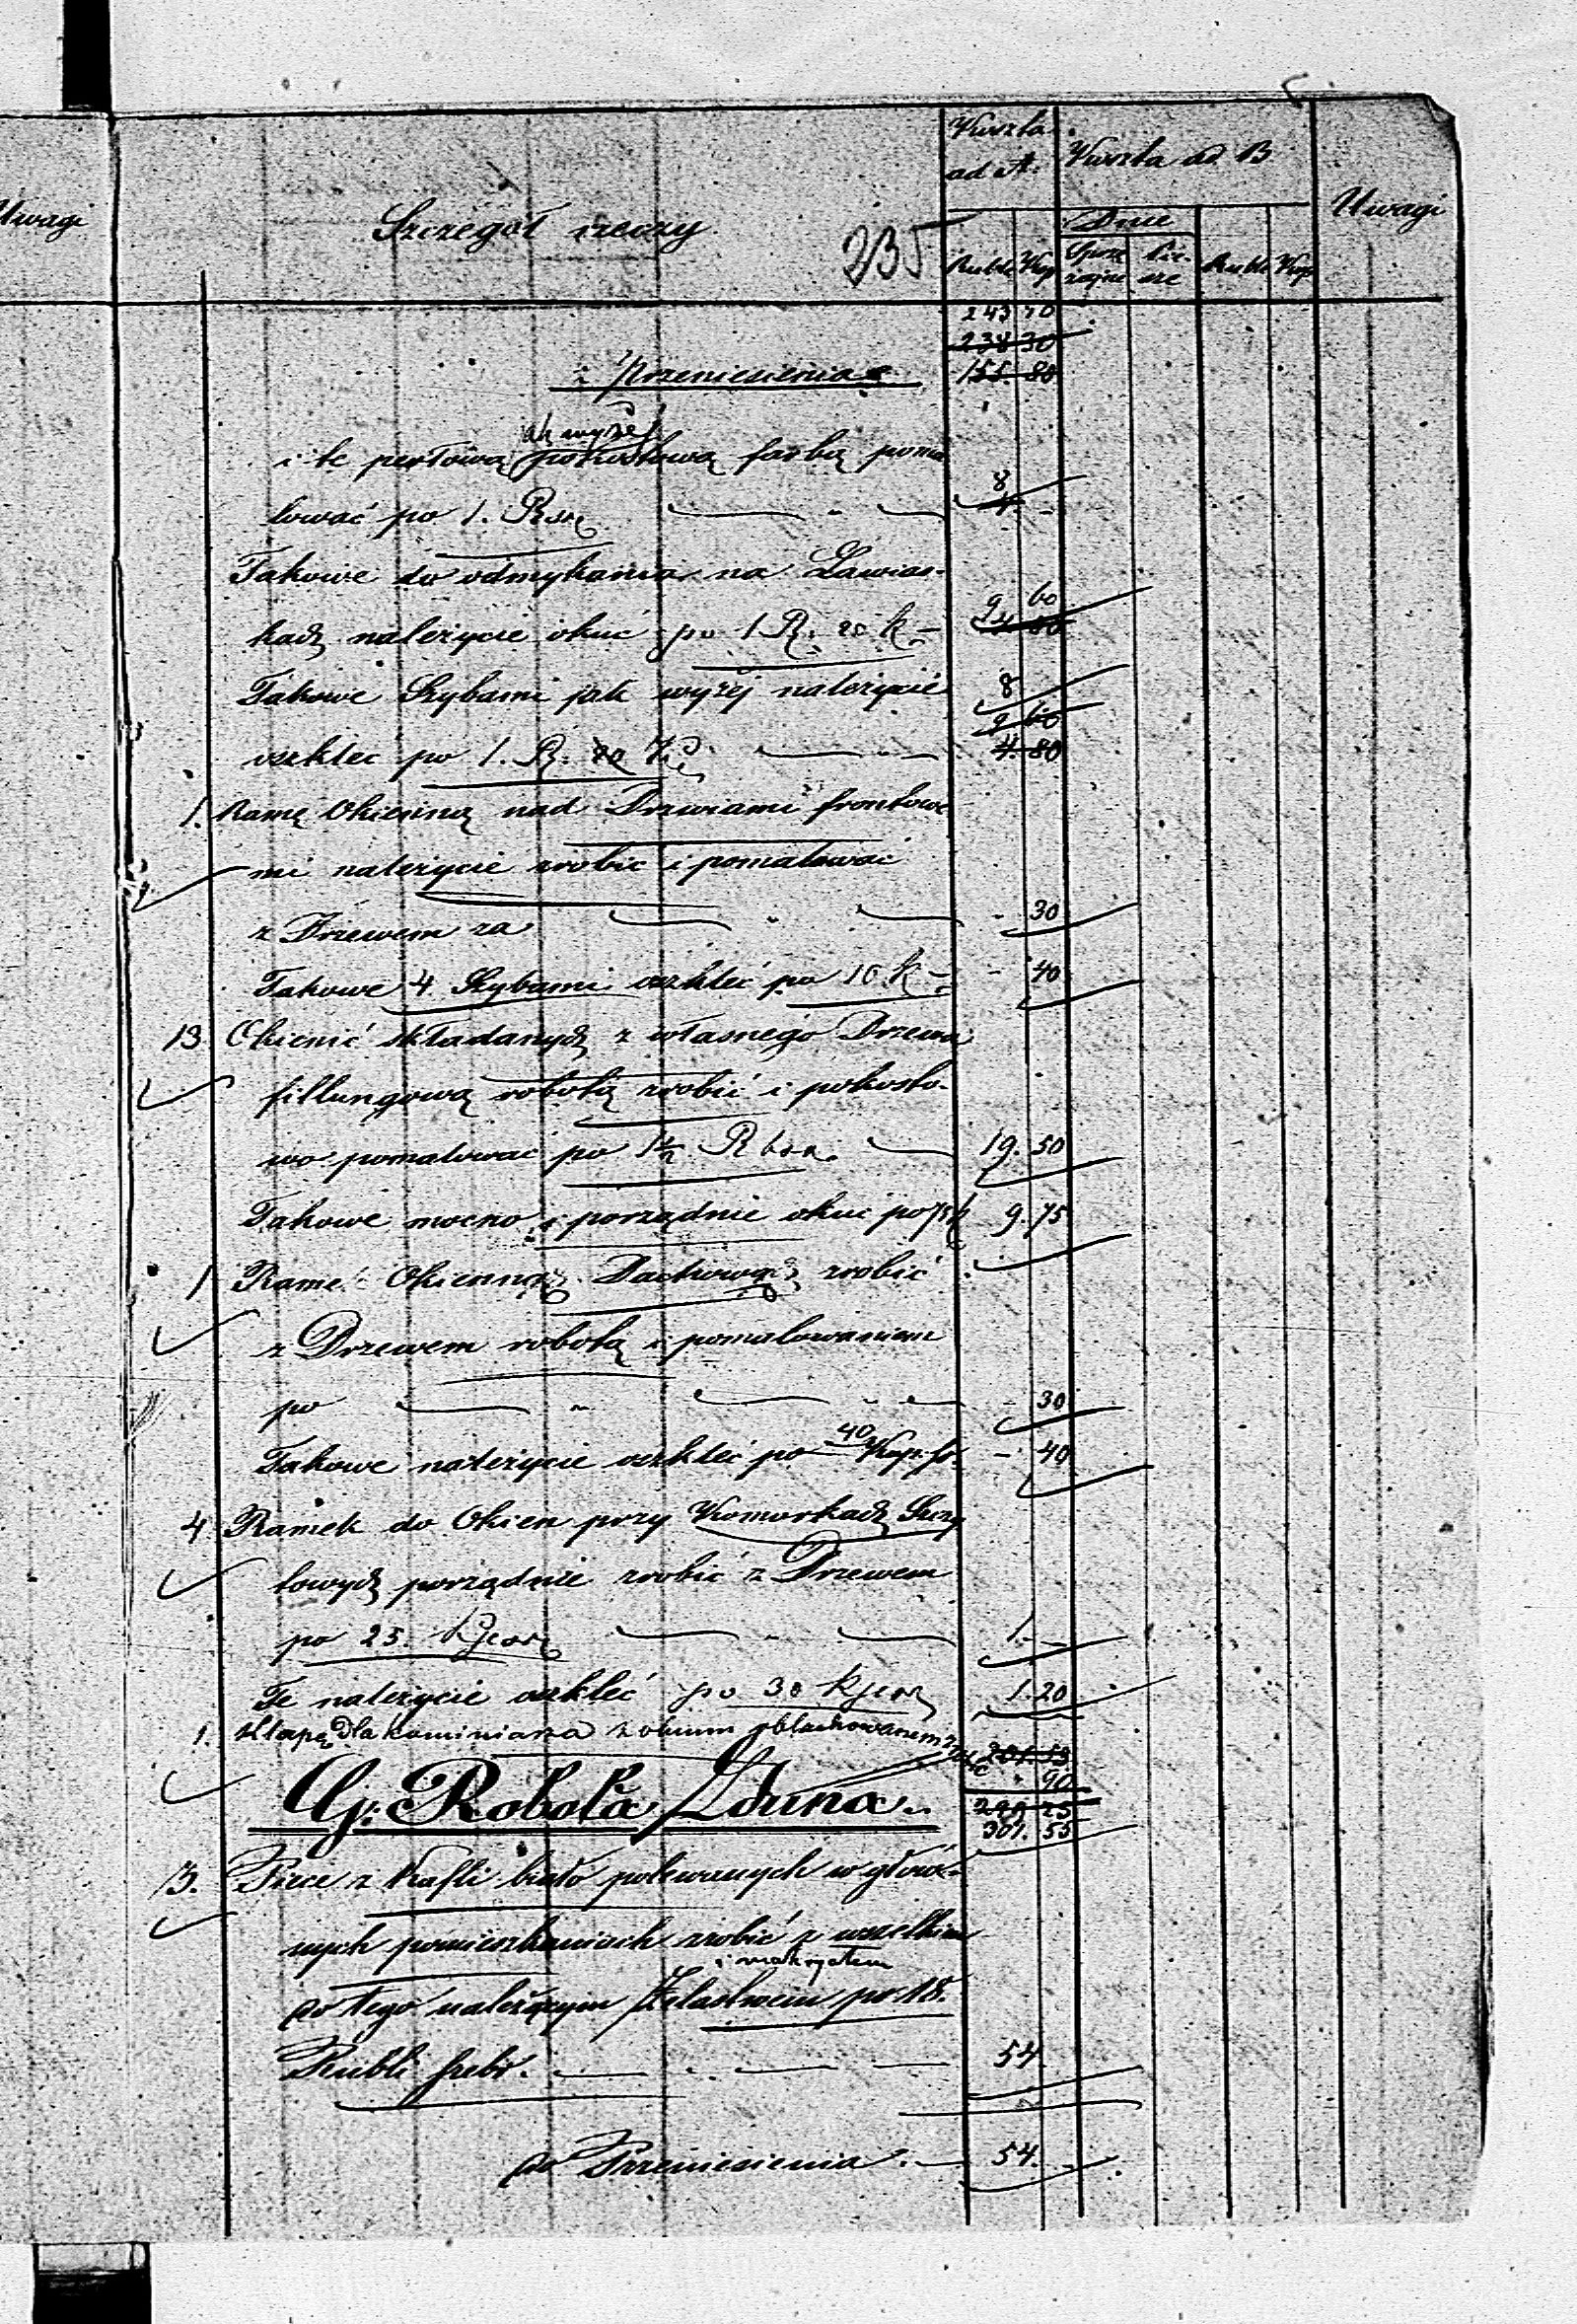 Uwagi
Szczegół rzeczy
235
Koszta
ad A.
Koszta ad B
Uwagi
Dnie
Ruble Kop
Sprzę- Pie-
żajne sze
Ruble Kop
243 70
238 30
z Przeniesienia 155. 80
jak wyżej
i te perłową pokostową farbą poma
8
lować po 1. Rsr. 4 -
Takowe do odmykania na Zawias-
9 60
kach należycie okuć po 1 R. 20 k - 4 80
Takowe Szybami jak wyżej należycie 8
9 60
oszkleć po 1. R. 20 K 4. 80
1. Ramę Okienną nad Drzwiami frontowe
mi należycie zrobić i pomalować
z Drzewem za - 30
Takowe 4 Szybami oszkleć po 10 k - - 40
13 Okienic składanych z własnego Drzewa
fillungową robotą zrobić i pokosto-
wo pomalować po 1½ Rbsr. 19. 50
Takowe mocno i porządnie okuć po 75 k 9. 75
1 Ramę Okienną Dachową zrobić
z Drzewem robotą i pomalowaniem
po - 30
40
Takowe należycie oszkleć po Kop. sr. - 40
4 Ramek do Okien przy Komorkach Szczy
towych porządnie zrobić z Drzewem
po 25. kjesr 1. -
Te należycie oszkleć po 30 kjesr 1. 20
1. Klapę dla kominiarza z okuciem oblachowaniem
- 90
G: Robota Zduna.
301. 55
3. Piece z Kafli biało polewanych w głów-
nych pomieszkaniach zrobić z wszelkim
i nakryciem
do tego należącym Żelastwem po 18.
Rubli srebr. 54.
do Przeniesienia. 54. -